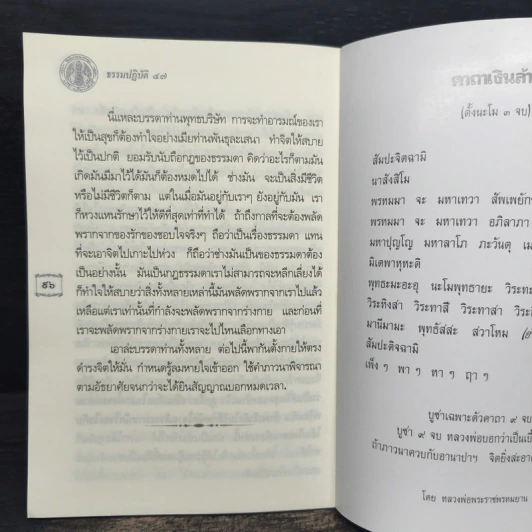 ธรรมปฏิบัติ ๔๗
นี่แหละบรรดาท่านพุทธบริษัท การจะทำอารมณ์ของเรา
ให้เป็นสุขก็ต้องทำใจอย่างเมียท่านพันธุละเสนา ทำจิตให้สบาย
ไว้เป็นปกติ ยอมรับนับถือกฎของธรรมดา คิดว่าอะไรก็ตามมัน
เกิดมันมีมาไว้ได้มันก็ต้องหมดไปได้ ช้างมัน จะเป็นสิ่งมีชีวิต
หรือไม่มีชีวิตก็ตาม แต่ในเมื่อมันอยู่กับเราๆ ยังอยู่กับมัน เรา
ก็หวงแหนรักษาไว้ให้ดีที่สุดเท่าที่ทำได้ ถ้าถึงกาลที่จะต้องพลัด
พรากจากของรักของชอบใจจริงๆ ถือว่าเป็นเรื่องธรรมดา แทน
ที่จะเอาจิตไปเกาะไปห่วง ก็ถือว่าช่างมันเป็นของธรรมดาต้อง
เป็นอย่างนั้น มันเป็นกฎธรรมดาเราไม่สามารถจะหลีกเลี่ยงได้
ก็ทำให้สบายว่าสิ่งทั้งหลายเหล่านี้มันพลัดพรากจากเราไปแล้ว
เหลือแต่เราเท่านั้นที่กำลังจะพลัดพรากจากร่างกาย และก่อนที่
เราจะพลัดพรากจากร่างกายเราจะไปไหนเลือกทางเอา
เอาล่ะบรรดาท่านทั้งหลาย ต่อไปนี้พากันตั้งกายให้ตรง
ดำรงจิตให้มั่น กำหนดรู้ลมหายใจเข้าออก ใช้คำภาวนาพิจารณา
ตามอัธยาศัยจนกว่าจะได้ยินสัญญาณบอกหมดเวลา.
๕๖
คาถาเงินล้า
(ตั้งนะโม ๓ จบ)
สัมปะจิตฉามิ
นาสังสิโม
พรหมมา จะ มหาเทวา สัพเพยัก
พรหมมา จะ มหาเทวา อภิลาภา
มหาปุญโญ มหาลาโภ ภะวันตุ เม
มิเตพาหุหะติ
พุทธะมะอะอุ นะโมพุทธายะ วิระทะ
วิระหิงสา วิระทาสี วิระทาสา วิระ
มานีมามะ พุทธัสสะ สวาโหม
สัมปะติจฉามิ
เพ็ง ๆ พา ๆ หา ๆ ฤา ๆ
บูชาเฉพาะตัวคาถา ๙ จ
บูชา ๙ จบ หลวงพ่อบอกว่าเป็นเบี้
ถ้าภาวนาควบกับอานาปาฯ จิตยิ่งสะอา
โดย หลวงพ่อพระราชพรหมยาน